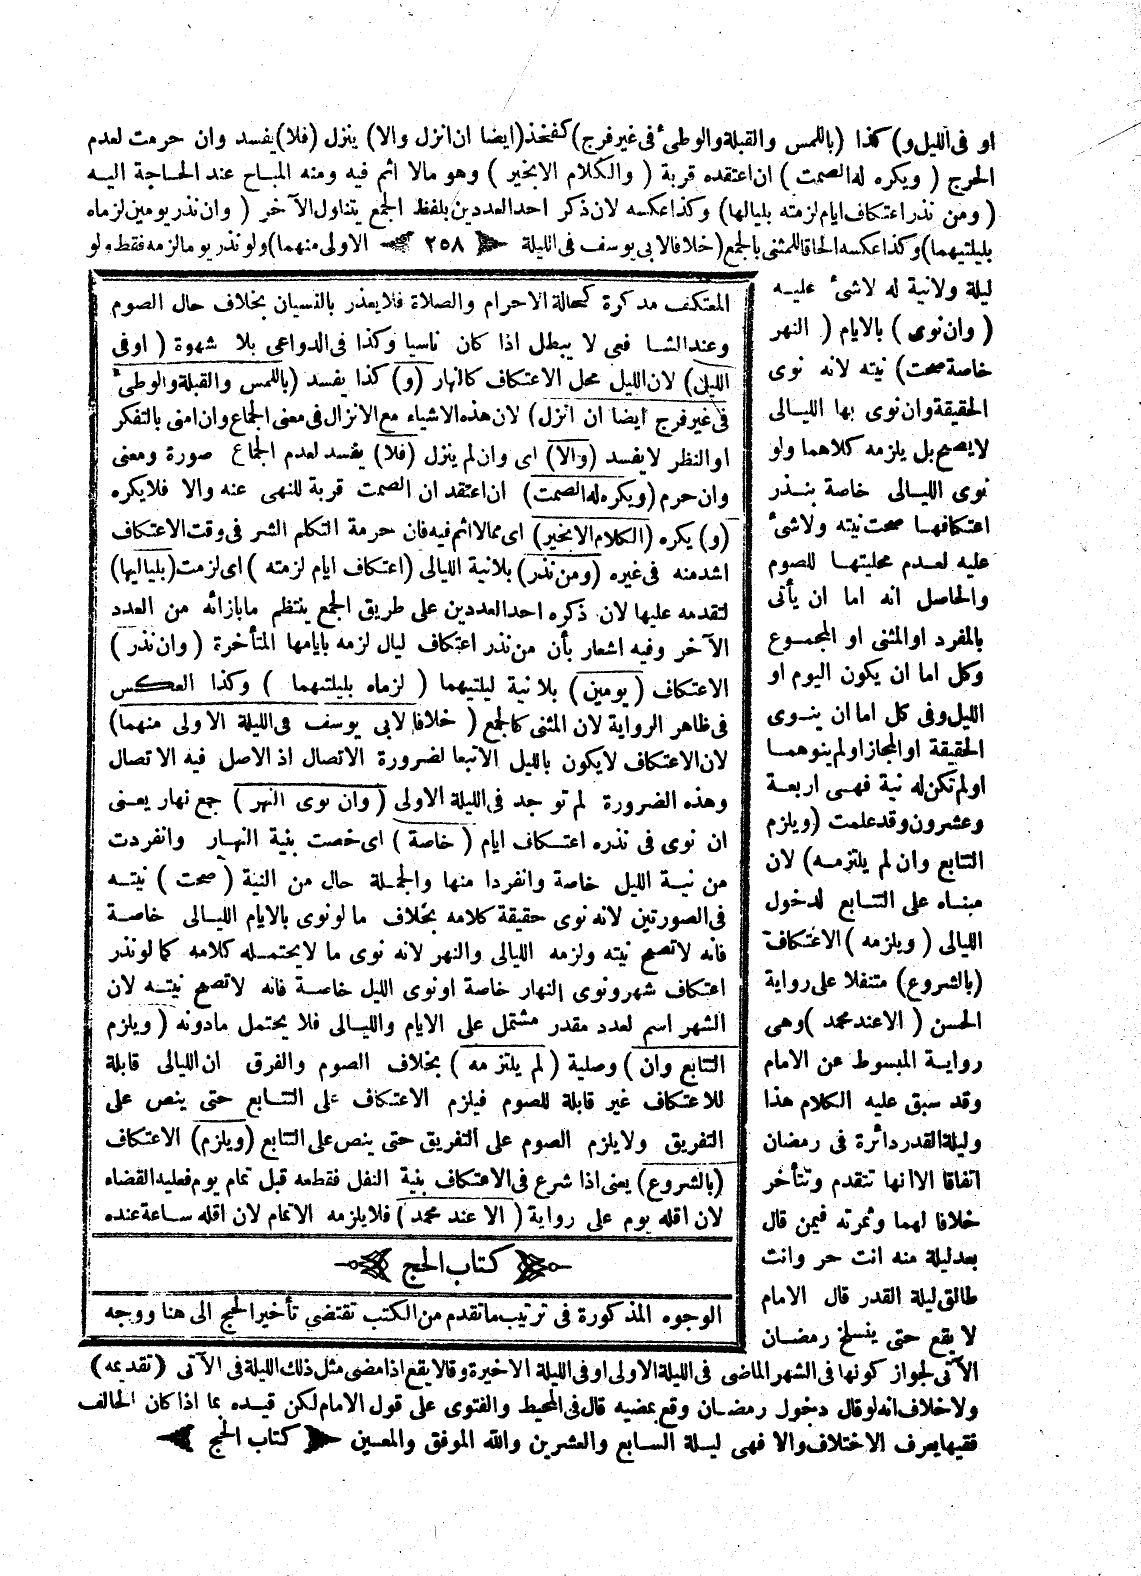 او فى الليل و) كذا (باللمس والقبلة والوطئ فى غير فرج) كفخذ (ايضا ان انزل والا) ينزل (فلا) يفسد وان حرمت لعدم
الحرج (ويكره له الصمت) ان اعتقده قربة (والكلام الا بخير) وهو مالا اثم فيه ومنه المباح عند الحاجة اليه
(ومن نذر اعتكاف ايام لزمته بلياليها) وكذا عكسه لان ذكر احد العددين بلفظ الجمع يتناول الآخر (وان نذر يومين لزماه
بليلتيهما) وكذا عكسه الحاقا للمثنى بالجمع (خلافا لابى يوسف فى الليلة ٢٥٨ الاولى منهما) ولو نذر يوما لزمه فقط ولو
ليلة ولانية له لاشئ عليه
(وان نوى) بالايام (النهر
خاصة صحت) نيته لانه نوى
الحقيقة وان نوى بها الليالى
لا يصح بل يلزمه كلاهما ولو
نوى الليالى خاصة بنذر
اعتكافها صحت نيته ولاشئ
عليه لعدم محليتها للصوم
والحاصل انه اما ان يأتى
بالمفرد او المثنى او المجموع
وكل اما ان يكون اليوم او
الليل وفى كل اما ان ينوى
الحقيقة او المجاز اولم ينوهما
اولم تكن له نية فهى اربعة
وعشرون وقد علمت (ويلزم
التتابع وان لم يلتزمه) لان
مبناه على التتابع لدخول
الليالى (ويلزمه) الاعتكاف
(بالشروع) متنفلا على رواية
الحسن (الا عند محمد) وهى
رواية المبسوط عن الامام
وقد سبق عليه الكلام هذا
وليلة القدر دائرة فى رمضان
اتفاقا الا انها تتقدم وتتأخر
خلافا لهما وثمرته فيمن قال
بعد ليلة منه انت حر وانت
طالق ليلة القدر قال الامام
لا يقع حتى ينسلخ رمضان
الآتى لجواز كونها فى الشهر الماضى فى الليلة الاولى او فى الليلة الاخيرة وقالا يقع اذا مضى مثل ذلك الليلة فى الآتى
ولا خلاف انه لو قال دخول رمضان وقع بمضيه قال فى المحيط والفتوى على قول الامام لكن قيده بما اذا كان الحالف
فقيها يعرف الاختلاف والا فهى ليلة السابع والعشرين والله الموفق والمعين كتاب الحج
المعتكف مذكرة كحالة الاحرام والصلاة فلا يعذر بالنسيان بخلاف حال الصوم
وعند الشافعى لا يبطل اذا كان ناسيا وكذا فى الدواعى بلا شهوة (اوفى
الليل) لان الليل محل الاعتكاف كالنهار (و) كذا يفسد (باللمس والقبلة والوطئ
فى غير فرج ايضا ان انزل) لان هذه الاشياء مع الانزال فى معنى الجماع وان امنى بالتفكر
او النظر لا يفسد (والا) اى وان لم ينزل (فلا) يفسد لعدم الجماع صورة ومعنى
وان حرم (ويكره له الصمت) ان اعتقد ان الصمت قربة للنهى عنه والا فلا يكره
(و) يكره (الكلام الا بخير) اى مما لا اثم فيه فان حرمة التكلم الشر فى وقت الاعتكاف
اشد منه فى غيره (ومن نذر) بلانية الليالى (اعتكاف ايام لزمته) اى لزمت (بلياليها)
لتقدمه عليها لان ذكره احد العددين على طريق الجمع ينتظم ما بازائه من العدد
الآخر وفيه اشعار بأن من نذر اعتكاف ليال لزمه بايامها المتأخرة (وان نذر)
الاعتكاف (يومين) بلانية ليلتيهما (لزماه بليلتيهما) وكذا العكس
فى ظاهر الرواية لان المثنى كالجمع (خلافا لابى يوسف فى الليلة الاولى منهما)
لان الاعتكاف لا يكون بالليل الا تبعا لضرورة الاتصال اذ الاصل فيه الاتصال
وهذه الضرورة لم توجد فى الليلة الاولى (وان نوى النهر) جمع نهار يعنى
ان نوى فى نذره اعتكاف ايام (خاصة) اى خصت بنية النهار وانفردت
من نية الليل خاصة وانفردا منها والجملة حال من النية (صحت) نيته
فى الصورتين لانه نوى حقيقة كلامه بخلاف ما لو نوى بالايام الليالى خاصة
فانه لا تصح نيته ولزمه الليالى والنهر لانه نوى ما لا يحتمله كلامه كما لو نذر
اعتكاف شهر ونوى النهار خاصة او نوى الليل خاصة فانه لا تصح نيته لان
الشهر اسم لعدد مقدر مشتمل على الايام والليالى فلا يحتمل مادونه (ويلزم
التتابع وان) وصلية (لم يلتزمه) بخلاف الصوم والفرق ان الليالى قابلة
للاعتكاف غير قابلة للصوم فيلزم الاعتكاف على التتابع حتى ينص على
التفريق ولا يلزم الصوم على التفريق حتى ينص على التتابع (ويلزم) الاعتكاف
(بالشروع) يعنى اذا شرع فى الاعتكاف بنية النفل فقطعه قبل تمام يوم فعليه القضاء
لان اقله يوم على رواية (الا عند محمد) فلا يلزمه الاتمام لان اقله ساعة عنده
كتاب الحج
الوجوه المذكورة فى ترتيب ما تقدم من الكتب تقتضى تأخير الحج الى هنا ووجه
(تقديمه)